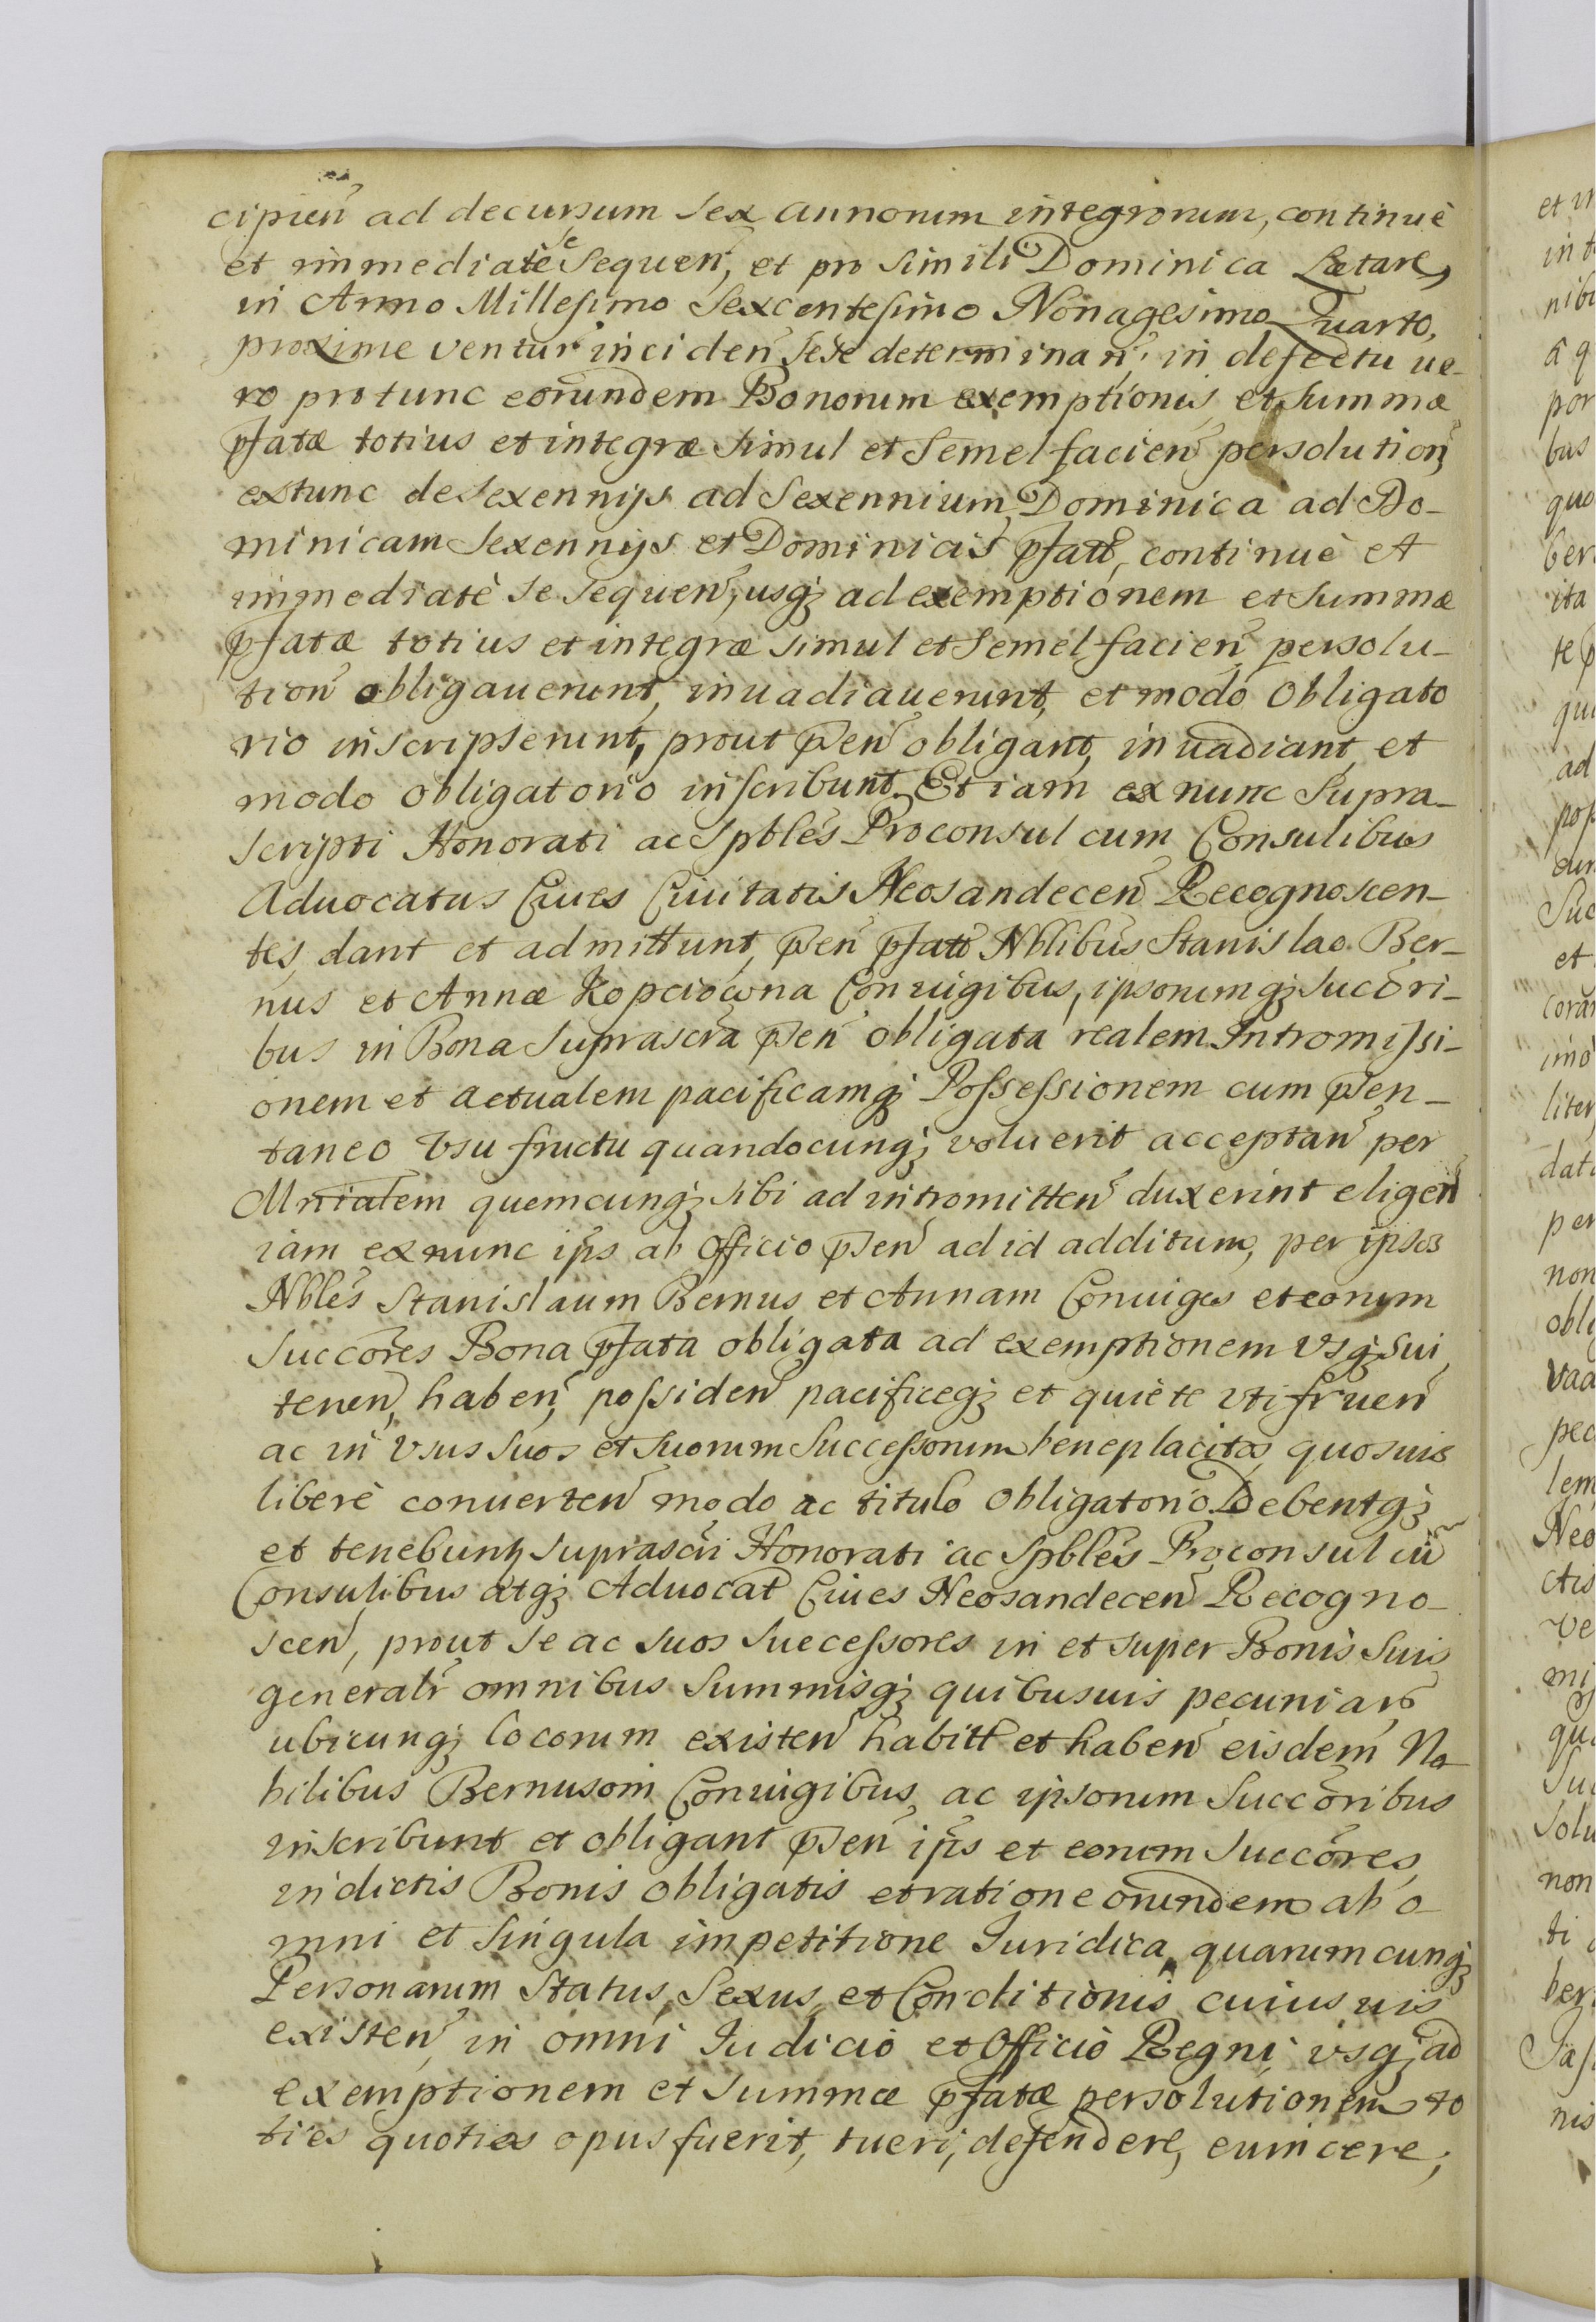 cipień ad decursum sex annorum integrorum, continuè
et immediatè se sequeń, et pro simili Dominica Lætare,
in Anno Millesimo Sexcentesimo Nonagesimo Quarto,
proxime ventur̃ incideń sese determinań, in defectu ue-
ro protunc eorundem Bonorum exemptionis et summæ
pfatæ totius et integræ simul et semel facień persolutioń
extunc de sexennijs ad Sexennium, Dominica ad Do-
minicam Sexennijs et Dominicis pfatt, continuè et
immediatè se sequeń, usq; ad exemptionem et summæ
pfatæ totius et integræ simul et semel facień persolu-
tioń obligauerunt, inuadiauerunt, et modo obligato
rio inscripserunt, prout pseń obligant, inuadiant, et
modo obligatorio inscribunt. Et iam ex nunc supra-
scripti Honorati ac Spbles Proconsul cum Consulibus
Aduocatus Ciues Ciuitatis Neosandeceń Recognoscen-
tes, dant et admittunt, pseń pfatt Nblibus Stanislao Ber-
nus et Annæ Kopciowna Coniugibus, ipsorumq; succori-
bus in Bona suprascra pseń obligata realem Intromissi-
onem et actualem pacificamq; Possessionem cum psen-
taneo Vsu fructu quandocunq; voluerit acceptań per
Mnialem quemcunq; sibi ad intromitteń duxerint eligeń
iam exnunc ips ab Officio pseń ad id additum, per ipsos
Nbles Stanislaum Bernus et Annam Coniuges et eorum
succores Bona pfata obligata ad exemptionem Vsq; sui,
teneń, habeń, possideń pacificeq; et quiete vtifrueń
ac in Vsus suos et suorum Successorum beneplacitos quosuis
liberè conuerteń modo ac titulo obligatorio. Debentq;
et tenebuntr suprascri Honorati ac Spbles Proconsul cũ
Consulibus atq; Aduocat Ciues Neosandeceń Recogno-
sceń, prout se ac suos successores in et super Bonis suis
generalr omnibus summisq; quibusuis pecuniars
ubicunq; locorum existeń habitt et habeń eisdem No
bilibus Bernusom Coniugibus, ac ipsorum succoribus
inscribunt et obligant pseń ips et eorum succores,
in dictis Bonis obligatis et ratione orundem ab o-
mni et singula impetitione Iuridica, quarumcunq;
Personarum status, Sexus, et Conditionis cuiusuis
existeń, in omni Iudicio et Officio Regni, vsq; ad
exemptionem et summæ pfatæ persolutionem to
ties quoties opus fuerit, tueri, defendere, euincere,